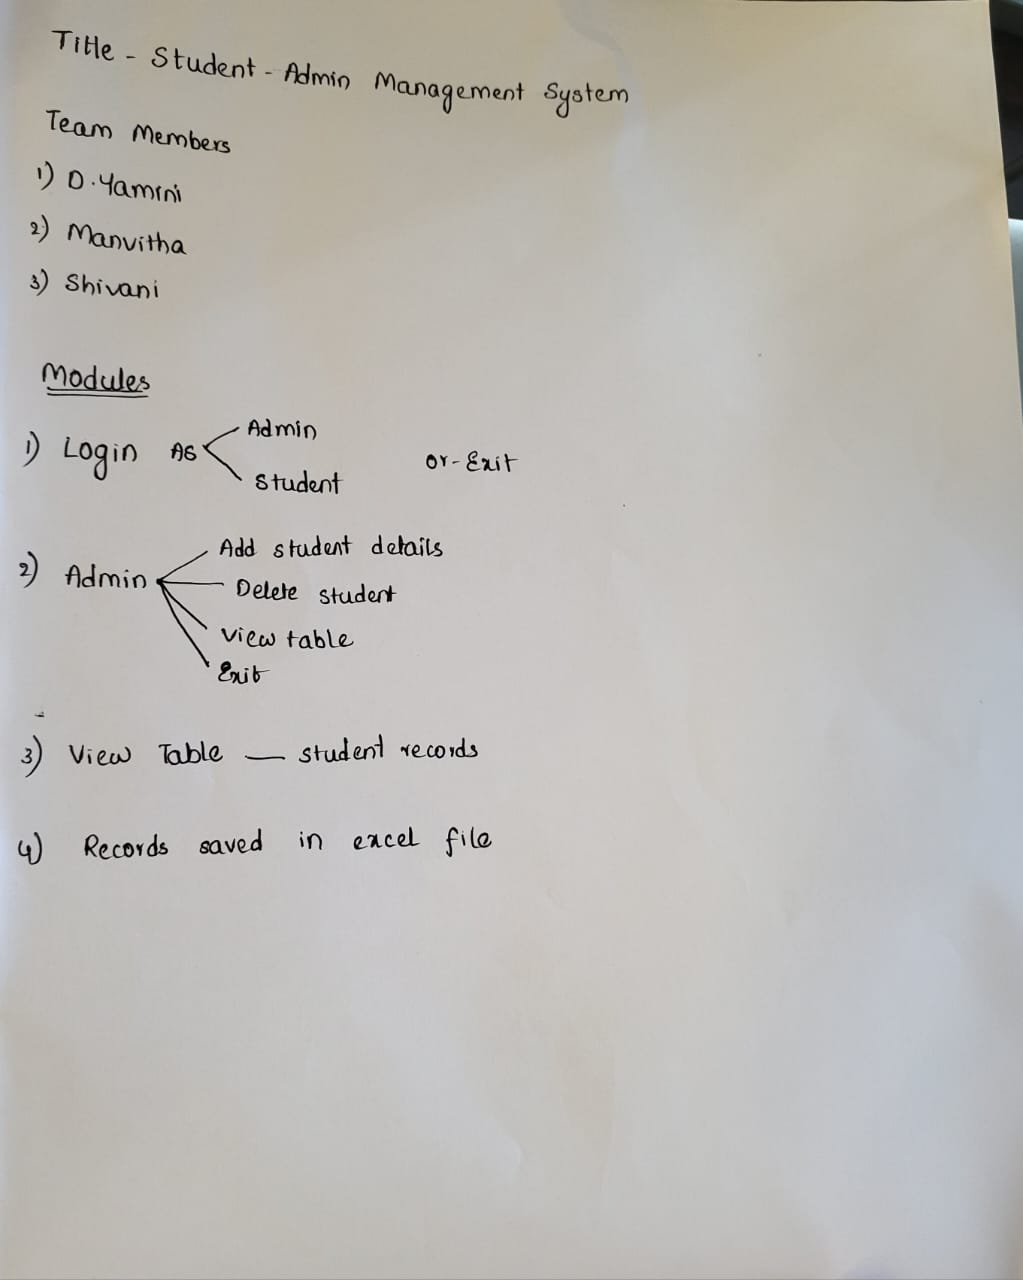 Title - Student - Admin Management System
Team Members
1) D. Yamini
2) Manvitha
3) Shivani
Modules
1) Login As Admin
Student
or - Exit
2) Admin Add student details
Delete student
view table
Exit
3) View Table — student records
4) Records saved in excel file